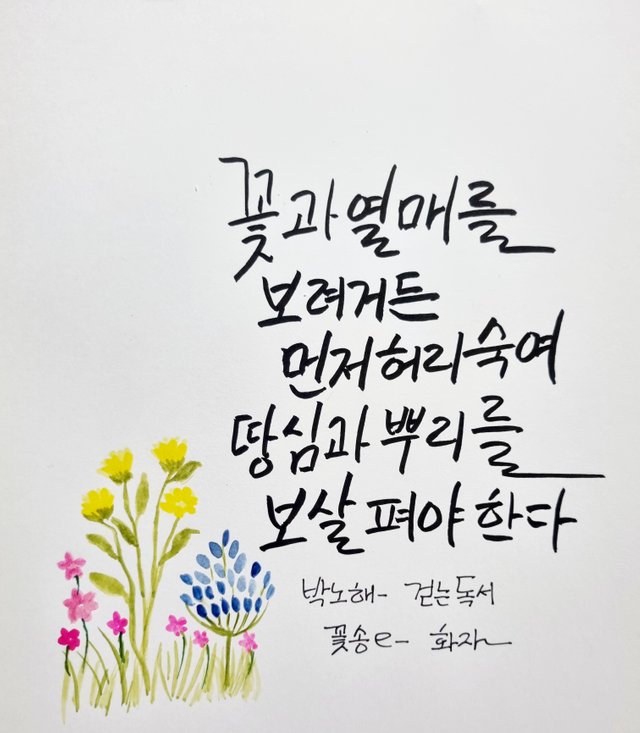 꽃과 열매를
보려거든
먼저 허리 숙여
땅심과 뿌리를
보살펴야 한다
박노해- 걷는독서
꽃송e- 화자